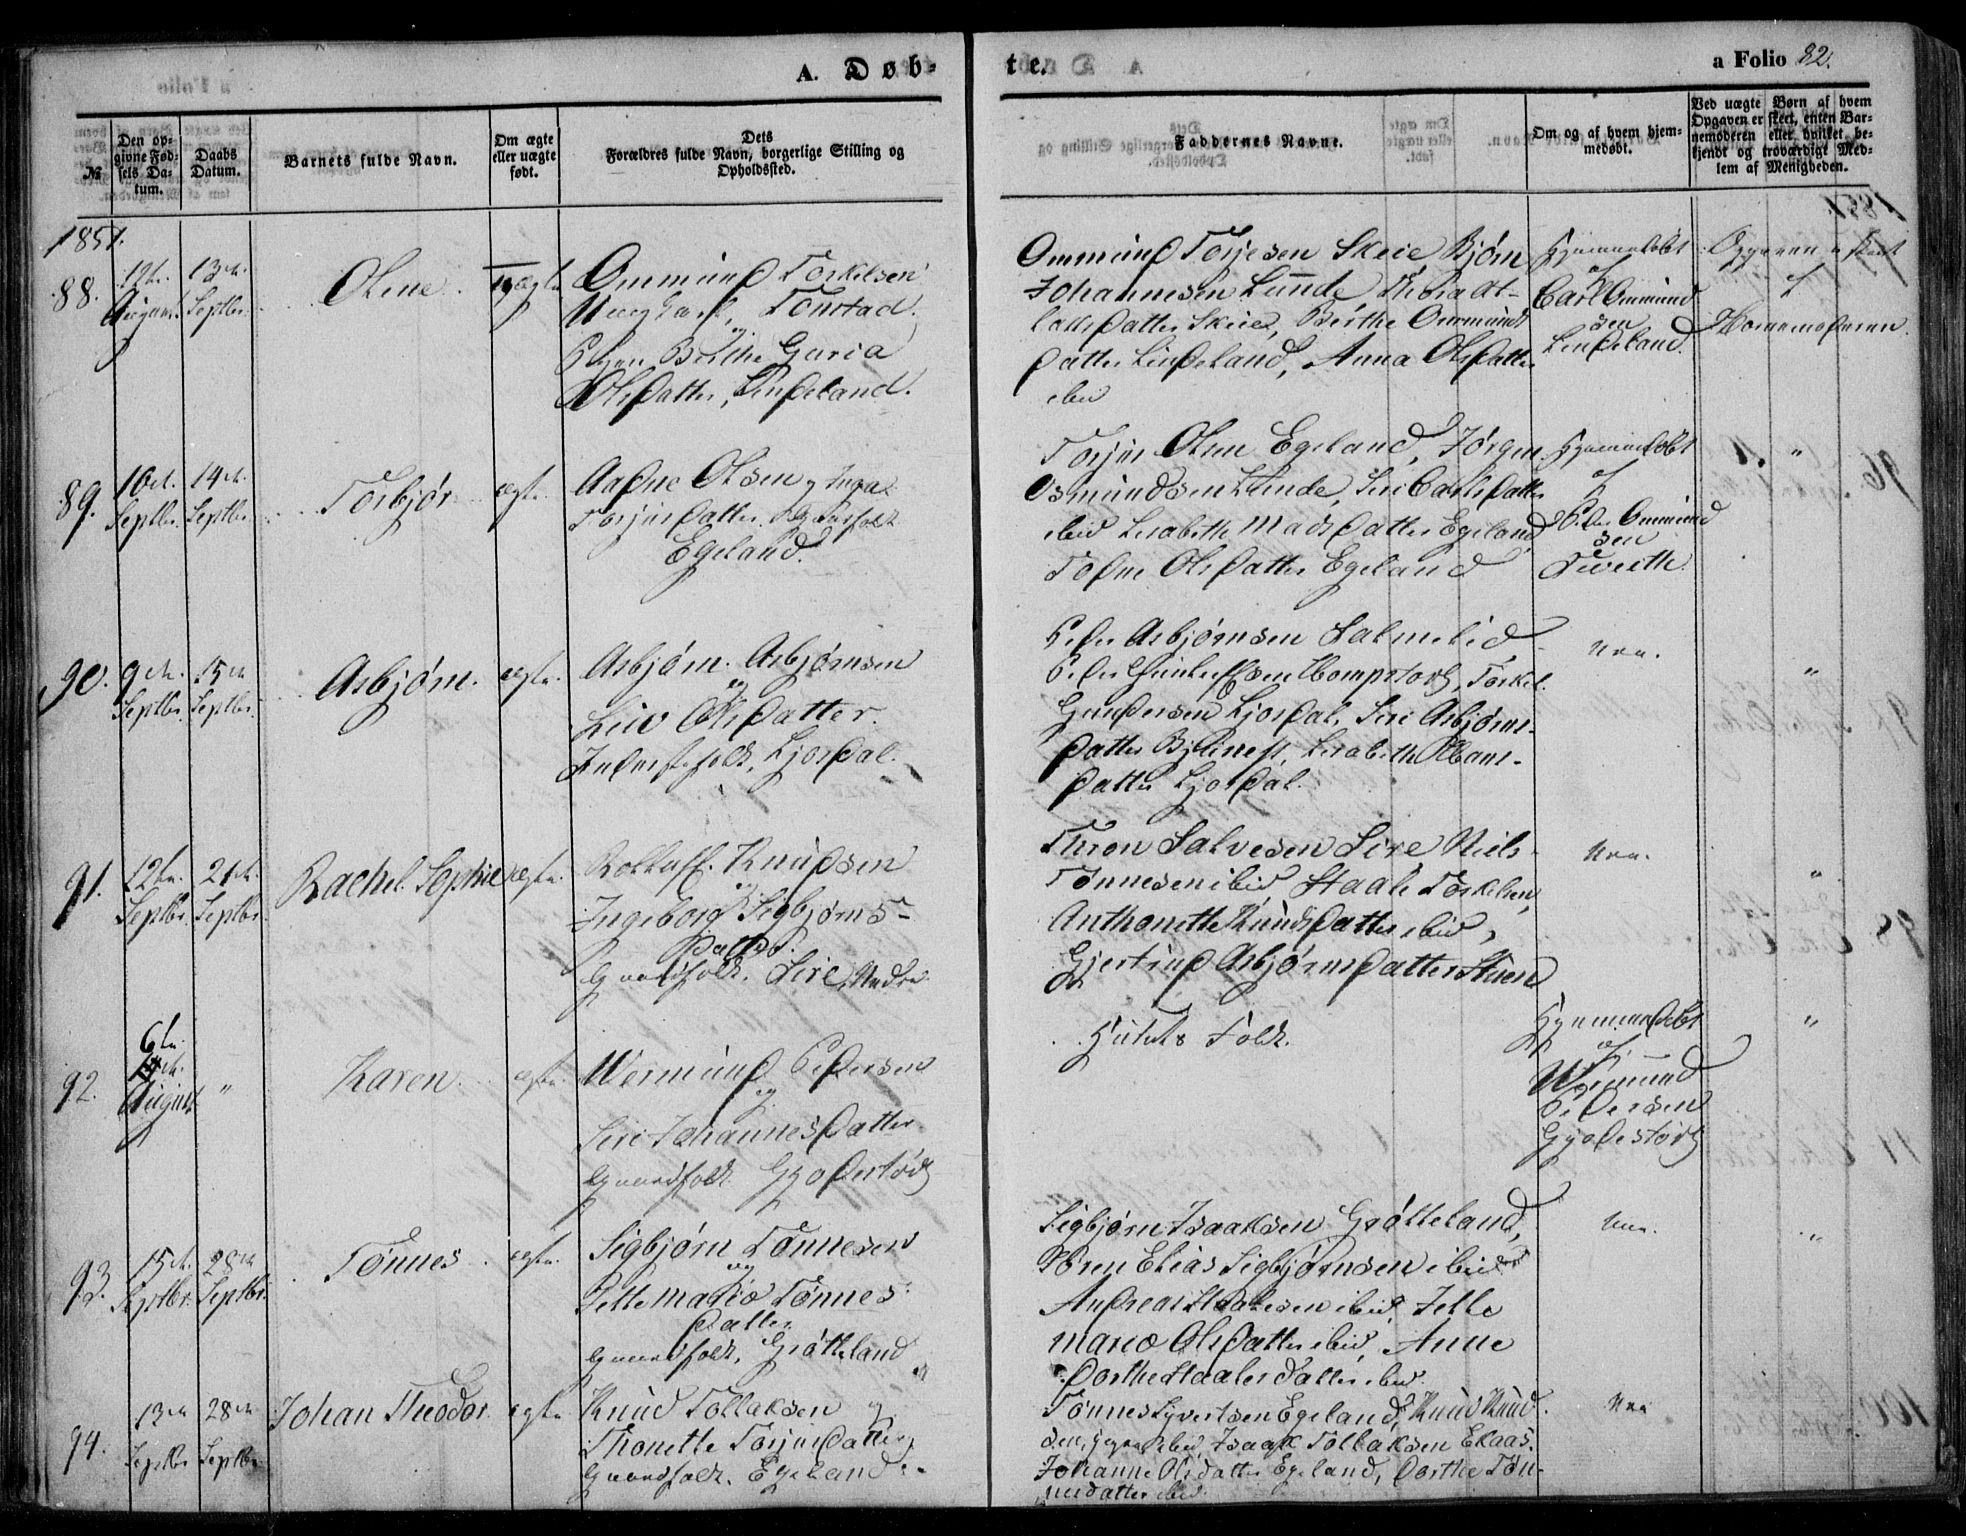 A. Døb-
te.
a Folio 82.
№
Den op-
givne Fød-
sels Da-
tum.
Daabs
Datum.
Barnets fulde Navn.
Om ægte
eller uægte
født.
Dets
Forældres fulde Navn, borgerlige Stilling og
Opholdssted.
Faddernes Navne.
Om og af hvem hjem-
medøbt.
Ved uægte Børn af hvem
Opgaven er skeet, enten Bar-
nemoderen eller hvilket be-
kjendt og troværdigt Med-
lem af Menigheden.
1851.
88.
12te
August
13de
Septbr.
Oline
uægte
Ommund Torkelsen
Ungkarl, Tonstad.
og
Pigen Berthe Guria
Olsdatter, Lindeland.
Ommund Torjesen Skeie Bjørn
Johannesen Lunde,
datter Skeie, Berthe Ommunds
datter Lindeland, Anna Olsdatter
ibid
Hjemmedøbt
af
Carl Ommund
sen
Lindeland.
Opgaven er skeet
af
Barnemoderen.
89.
10de
Septbr.
14de
Septbr.
Torbjør
ægte
Aadne Olsen og Inga
Torjusdatter,
Egeland.
Torjus Olsen Egeland, Jørgen
Osmundsen Lunde, Siri Carlsdatter
ibid Lisabeth Madsdatter Egeland
Todne Olsdatter Egeland
Hjemmedøbt
af
Peder Ommund
sen
Tveith.
"
90.
9de
Septbr.
15de
Septbr.
Asbjørn.
ægte.
Asbjørn Asbjørnsen
og
Liv Olsdatter.
Inderstfolk, Ljosdal.
Peder Asbjørnsen Salmelid
Peder Gunleffsen Hompstøl, Torkel
Gundersen Ljosdal, Siri Asbjørns-
datter Bjunes, Lisabeth Hans-
datter Ljosdal.
Nei.
"
91.
12te
Septbr.
21de
Septbr.
Rachel Sophie
ægte.
Rolluff Knudsen
og
Ingeborg Sigbjørns-
datter.
Gaardfolk. Sire Nedre
Thron Salvesen Sire Niels
Tønnesen ibid Staale Torkelsen,
Anthonette Knudsdatter ibid,
Gjertrud Asbjørnsdatter Stuen
Nei.
"
92.
6te
August
"
Karen
ægte.
Wermund Pedersen
og
Siri Johannesdatter
Gaardfolk Gyodestøl
Husets Folk.
Hjemmedøbt
af
Wermund
Pedersen
Gyodestøl
"
93.
15de
Septbr.
28de
Septbr.
Tønnes
ægte.
Sigbjørn Tønnesen
og
Jette Maria Tønnes-
datter
Gaardfolk, Grøtteland
Sigbjørn Isaaksen Grøtteland,
Søren Elias Sigbjørnsen ibid
Andreas Staalesen ibid, Jette
Maria Olsdatter ibid, Anne
Dorthe Staalesdatter ibid.
Nei.
"
94.
13de
Septbr
28de
Septbr.
Johan Theodor
ægte
Knud Tollaksen og
Thonette Torjusdatter
Gaardfolk. Egeland.
Tønnes Syvertsen Egeland, Knud Knud
sen, ibid, Isaak Tollaksen Ekaas.
Johanne Olsdatter Egeland, Dorthe Tøn-
nesdatter ibid.
Nei